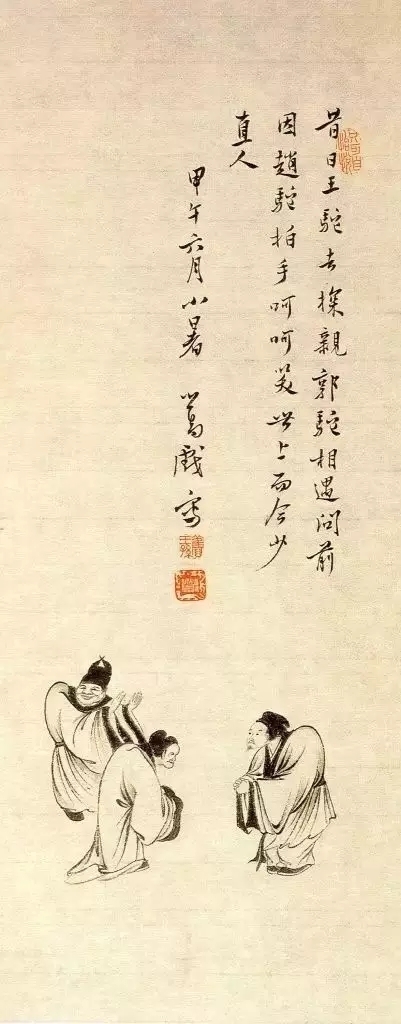 昔日王駝去探親郭駝相遇問前
因趙駝拍手呵呵笑世上而今少
直人
甲午六月小暑 心畬戲寫